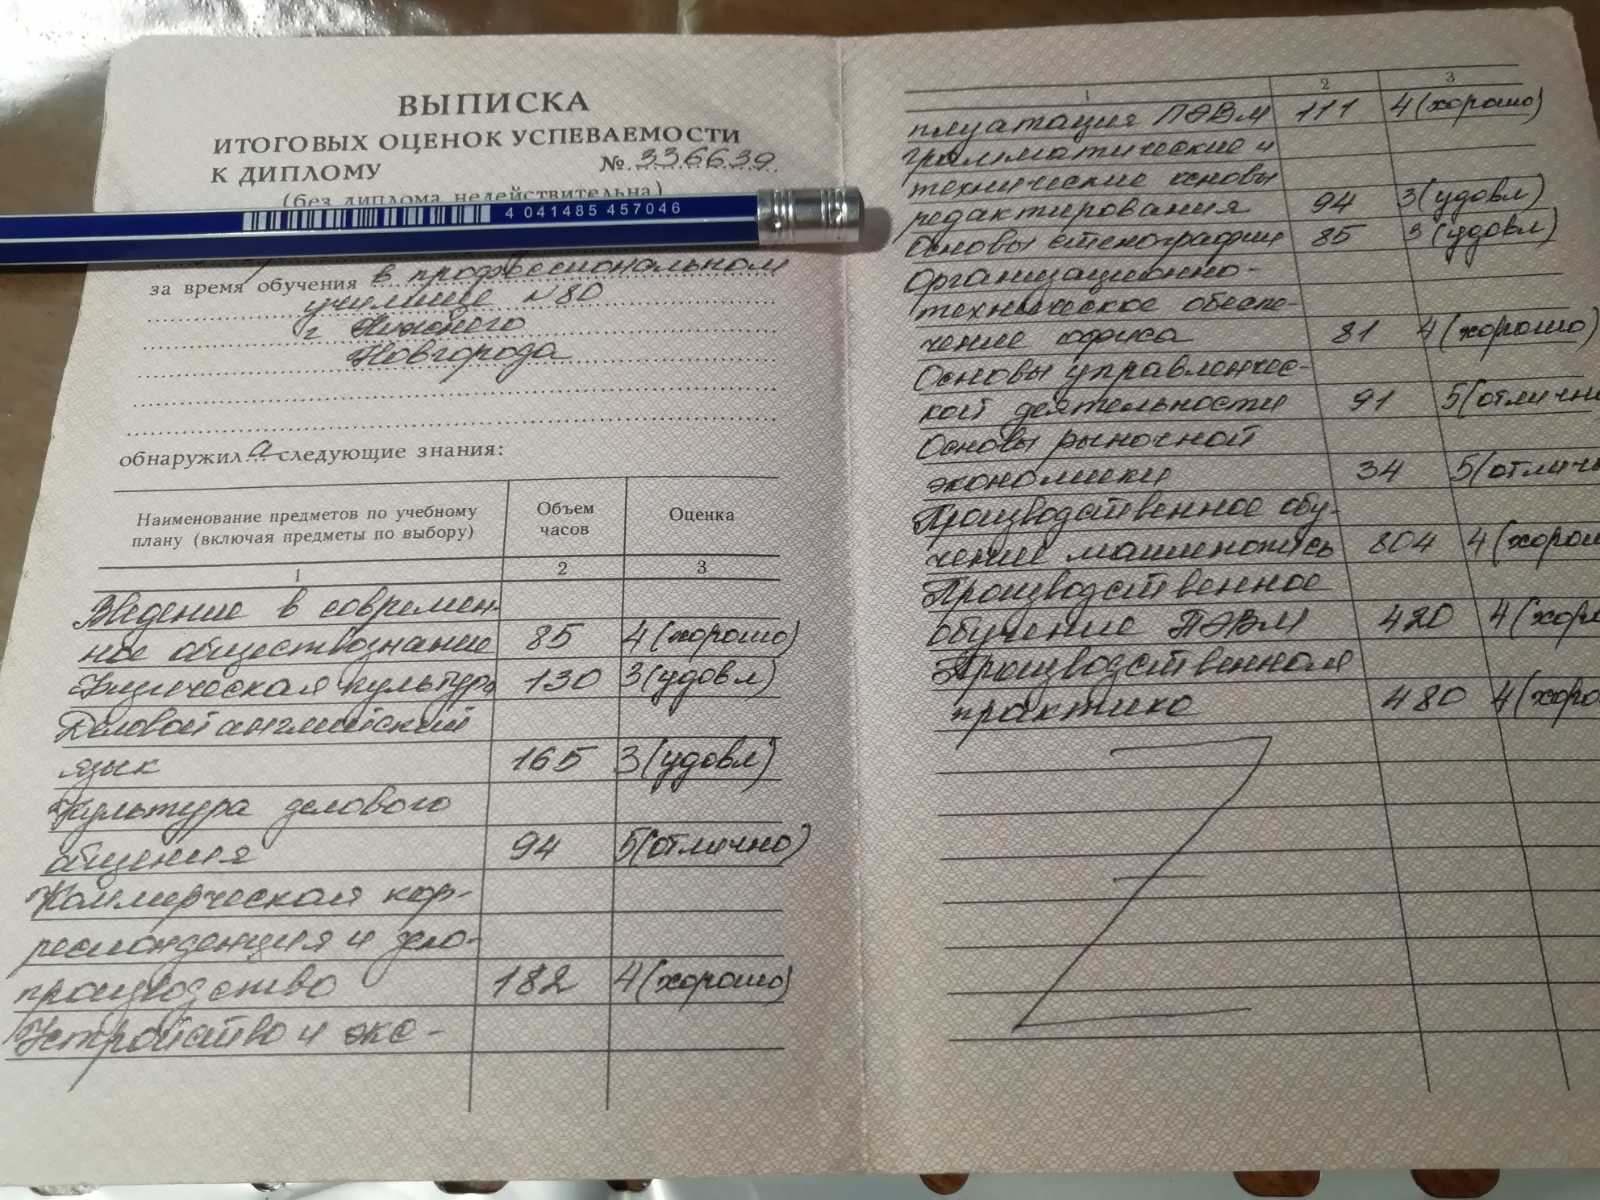 ВЫПИСКА
ИТОГОВЫХ ОЦЕНОК УСПЕВАЕМОСТИ
К ДИПЛОМУ № 336639
(без диплома недействительна)
4 041485 457046
за время обучения в профессиональном
училище №80
г Нижнего
Новгорода
обнаружил а следующие знания:
Наименование предметов по учебному плану (включая предметы по выбору) Объем часов Оценка
1 2 3
Введение в современ-
ное обществознание 85 4(хорошо)
Физическая культура 130 3(удовл)
Деловой английский
язык 165 3(удовл)
Культура делового
общения 94 5(отлично)
Коммерческая кор-
респонденция и дело-
производство 182 4(хорошо)
Устройство и экс-
1 2 3
плуатация ПЭВМ 111 4(хорошо)
грамматические и
технические основы
редактирования 94 3(удовл)
Основы стенографии 85 3(удовл)
Организационно-
техническое обеспе-
чение офиса 81 4(хорошо)
Основы управленчес-
кой деятельности 91 5(отлично
Основы рыночной
экономики 34 5(отличн
Производственное обу-
чение машинопись 804 4(хорош
Производственное
обучение ПЭВМ 420 4(хор
Производственная
практика 480 4(хоро